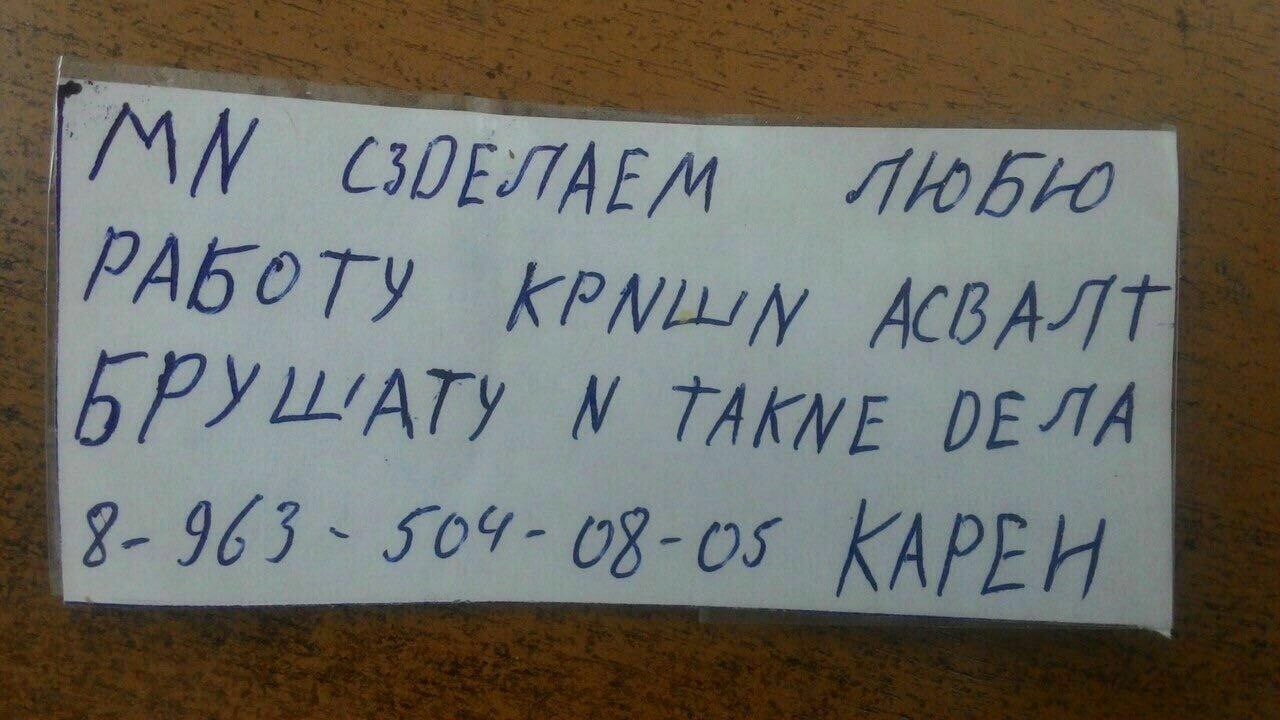 МN СЗDЕЛАЕМ ЛЮБЮ
РАБОТУ КРNШN АСВАЛТ
БРУШАТУ N ТАКNЕ DЕЛА
8-963-504-08-05 КАРЕН